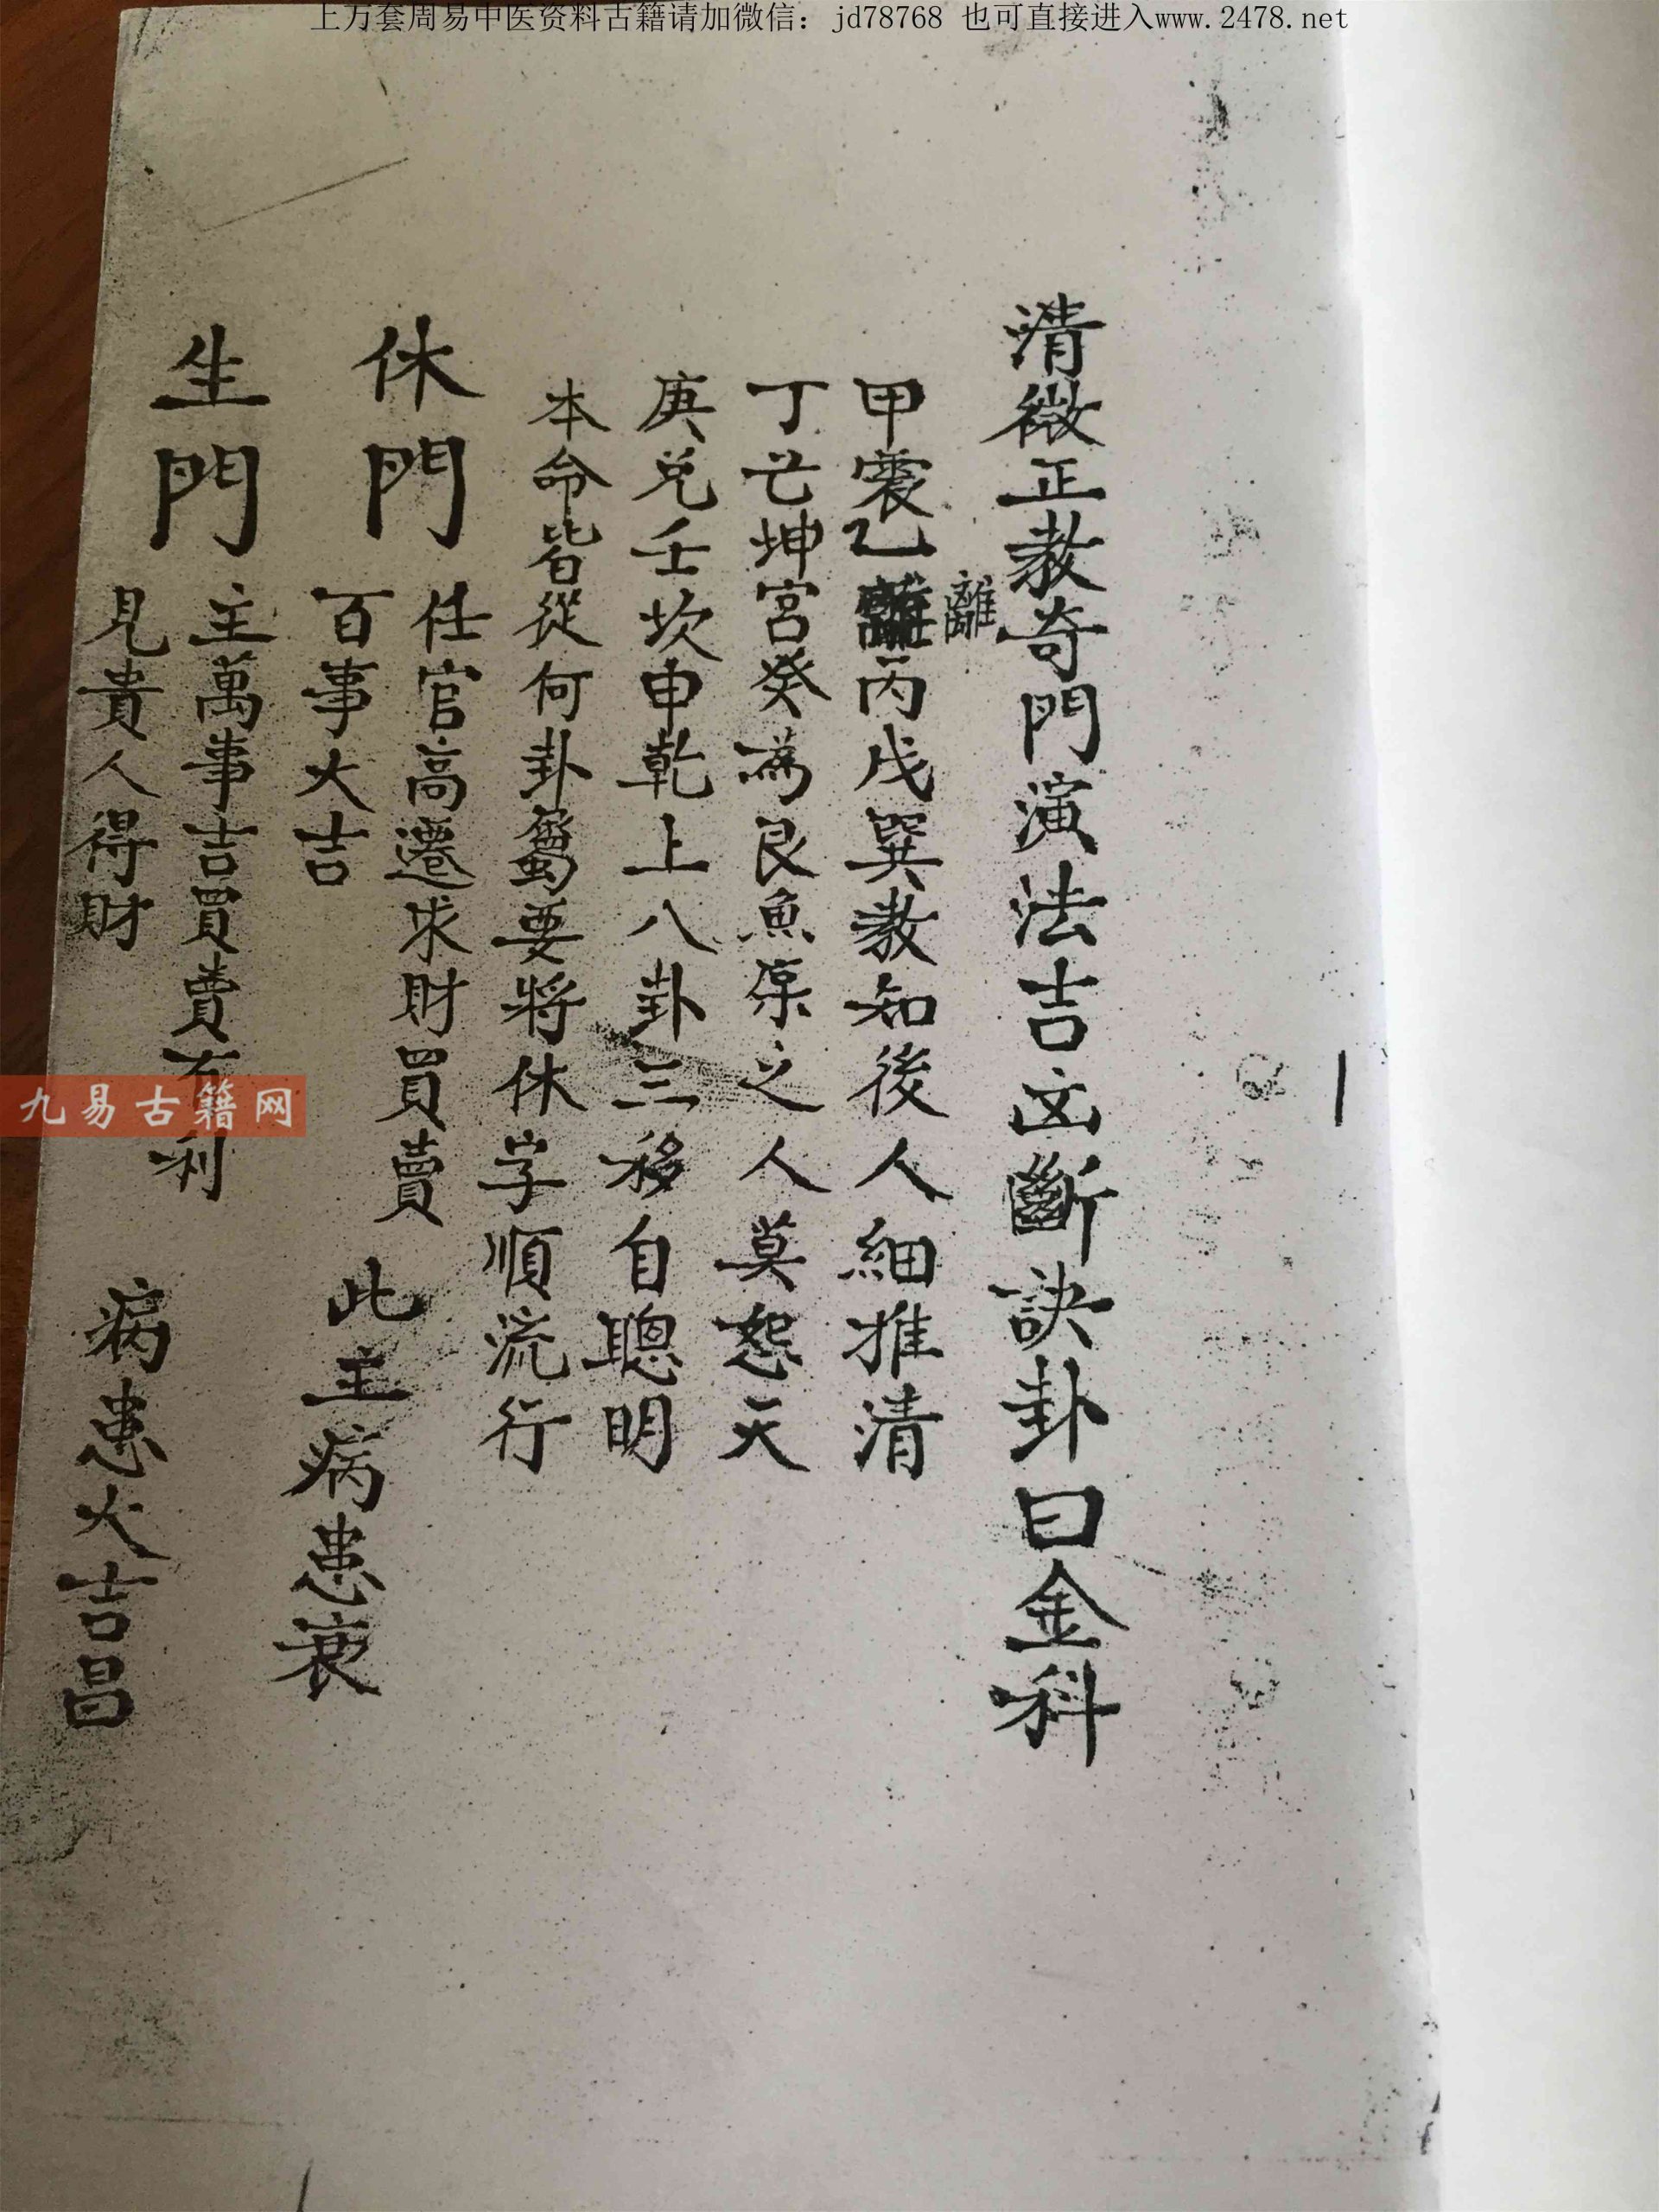 上万套周易中医资料古籍请加微信：jd78768 也可直接进入www.2478.net
清微正教奇門演法吉凶斷訣卦曰金科
離
甲震乙離丙戌巽教知後人細推清
丁亡坤宮癸為艮魚深之人莫怨天
庚兌壬坎申乾上八卦三移自聰明
本命皆從何卦屬要將休字順流行
休門
任官高遷求財買賣
百事大吉
此主病患衰
生門
主萬事吉買賣有利
見貴人得財
病患大吉昌
九易古籍网